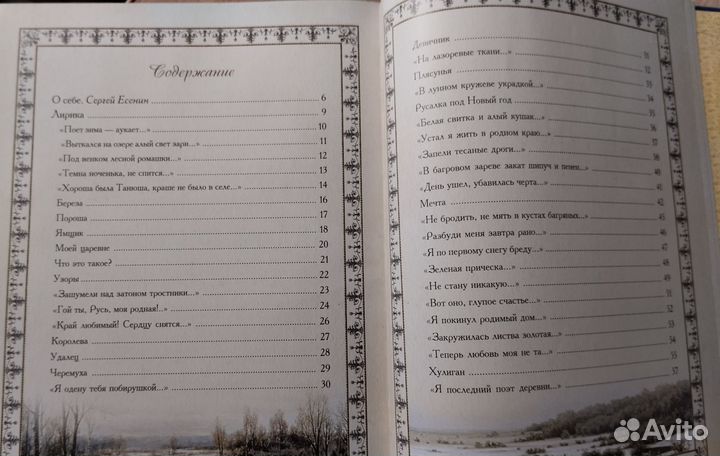 Содержание
О себе. Сергей Есенин 6
Лирика 9
«Поет зима — аукает...» 10
«Выткался на озере алый свет зари...» 11
«Под венком лесной ромашки...» 12
«Темна ноченька, не спится...» 13
«Хороша была Танюша, краше не было в селе...» 14
Береза 16
Пороша 17
Ямщик 18
Моей царевне 20
Что это такое? 21
Узоры 22
«Зашумели над затоном тростники...» 23
«Гой ты, Русь, моя родная!..» 24
«Край любимый! Сердцу снятся...» 26
Королева 27
Удалец 28
Черемуха 29
«Я одену тебя побирушкой...» 30
Девичник 31
«На лазоревые ткани...» 32
Плясунья 33
«В лунном кружеве украдкой...» 34
Русалка под Новый год 35
«Белая свитка и алый кушак...» 36
«Устал я жить в родном краю...» 37
«Запели тесаные дроги...» 38
«В багровом зареве закат шипуч и пенен... 40
«День ушел, убавилась черта...» 41
Мечта 42
«Не бродить, не мять в кустах багряных...» 45
«Разбуди меня завтра рано...» 46
«Я по первому снегу бреду...» 47
«Зеленая прическа...» 48
«Не стану никакую...» 49
«Вот оно, глупое счастье...» 51
«Я покинул родимый дом...» 52
«Закружилась листва золотая...» 53
«Теперь любовь моя не та...» 54
Хулиган 55
«Я последний поэт деревни...» 57
Avito